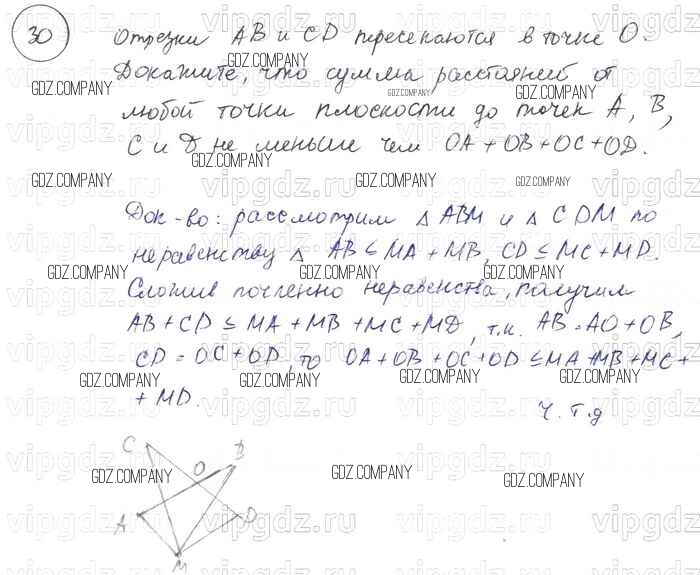 30
Отрезки AB и CD пересекаются в точке O.
Докажите, что сумма расстояний от
любой точки плоскости до точек A, B,
C и D не меньше чем OA + OB + OC + OD.
Док-во: рассмотрим △ ABM и △ CDM по
неравенству △ AB ≤ MA + MB, CD ≤ MC + MD.
Сложив почленно неравенства, получим
AB + CD ≤ MA + MB + MC + MD, т.к. AB = AO + OB,
CD = OC + OD, то OA + OB + OC + OD ≤ MA + MB + MC +
+ MD.
Ч.т.д
C
B
O
A
D
M
GDZ.COMPANY
vipgdz.ru